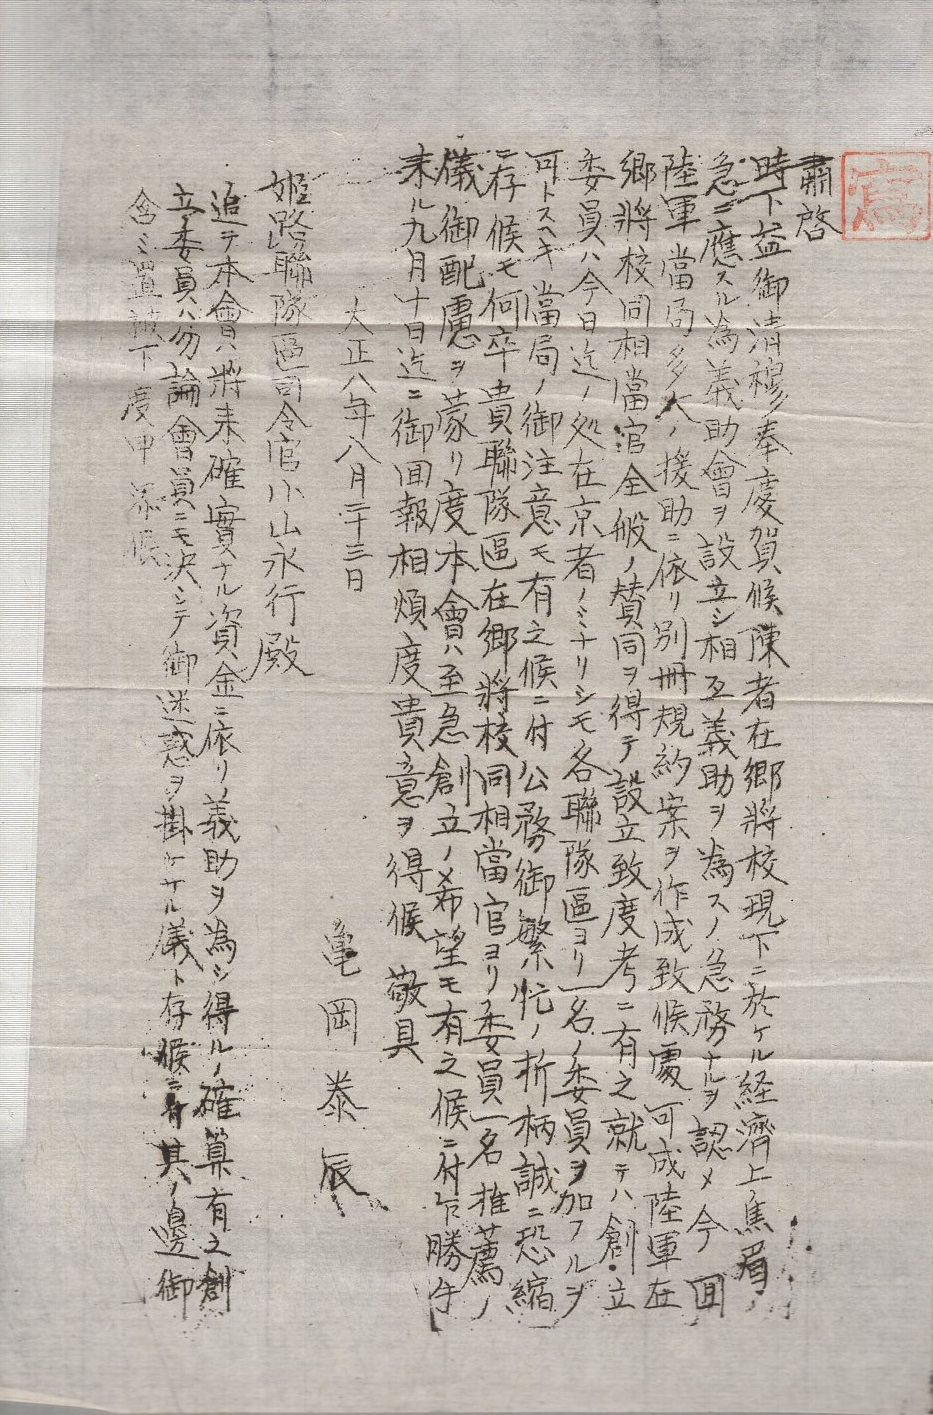 寫
肅啓
時下益御清穆奉慶賀候陳者在郷將校現下ニ於ケル経濟上焦眉ノ
急ニ應スル為義助會ヲ設立シ相互義助ヲ為スノ急務ナルヲ認メ今囬
陸軍當局多大ノ援助ニ依リ別冊規約案ヲ作成致候處可成陸軍在
郷將校同相當官全般ノ賛同ヲ得テ設立致度考ニ有之就テハ創立
委員ハ今日迄ノ処在京者ノミナリシモ各聯隊區ヨリ一名ノ委員ヲ加フルヲ
可トスヘキ當局ノ御注意モ有之候ニ付公務御繁忙ノ折柄誠ニ恐縮
ニ存候モ何卒貴聯隊區在郷將校同相當官ヨリ委員一名推薦ノ
儀御配慮ヲ蒙リ度本會ハ至急創立ノ希望モ有之候ニ付乍勝手
来ル九月十日迄ニ御囬報相煩度貴意ヲ得候 敬具
大正八年八月二十三日
亀岡泰辰
姫路聯隊區司令官小山永行殿
追テ本會ハ將来確實ナル資金ニ依リ義助ヲ為シ得ルノ確算有之創
立委員ハ勿論會員ニモ決シテ御迷惑ヲ掛ケサル儀ト存候ニ付其ノ邊御
含ミ置被下度申添候